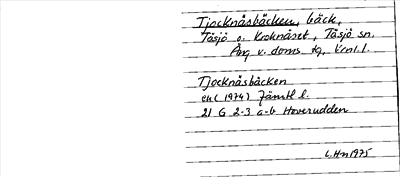 Tjocknåsbäcken, bäck,
Tåsjö o. Kroknäset, Tåsjö sn,
Ång v. doms tg, Vrnl. l.
Tjocknåsbäcken
ek (1974) Jämtl l.
21 G 2-3 a-b Hoverudden
L. Hn 1975